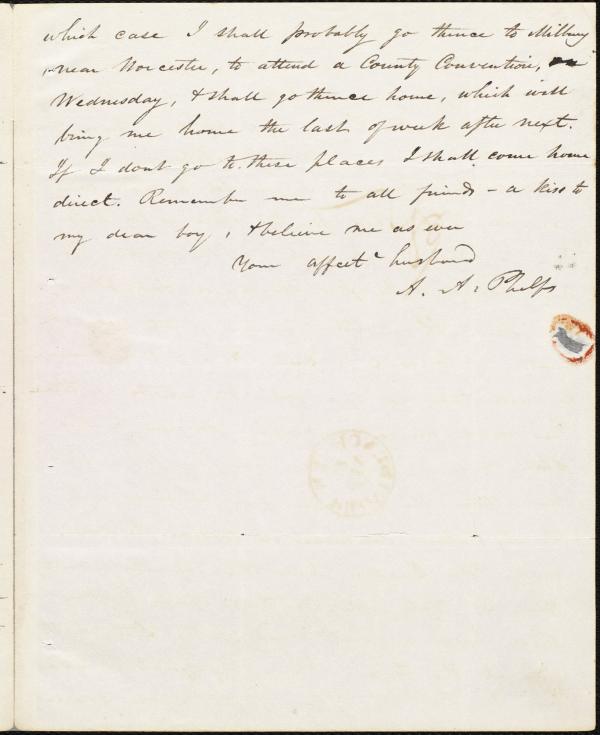 which case I shall probably go thence to Millbury
near Worcester, to attend a County Convention, on
Wednesday, & shall go thence home, which will
bring me home the last of week after next.
If I dont go to these places I shall come home
direct. Remember me to all friends – a kiss to
my dear boy, & believe me as ever
Your affect. husband
A. A. Phelps